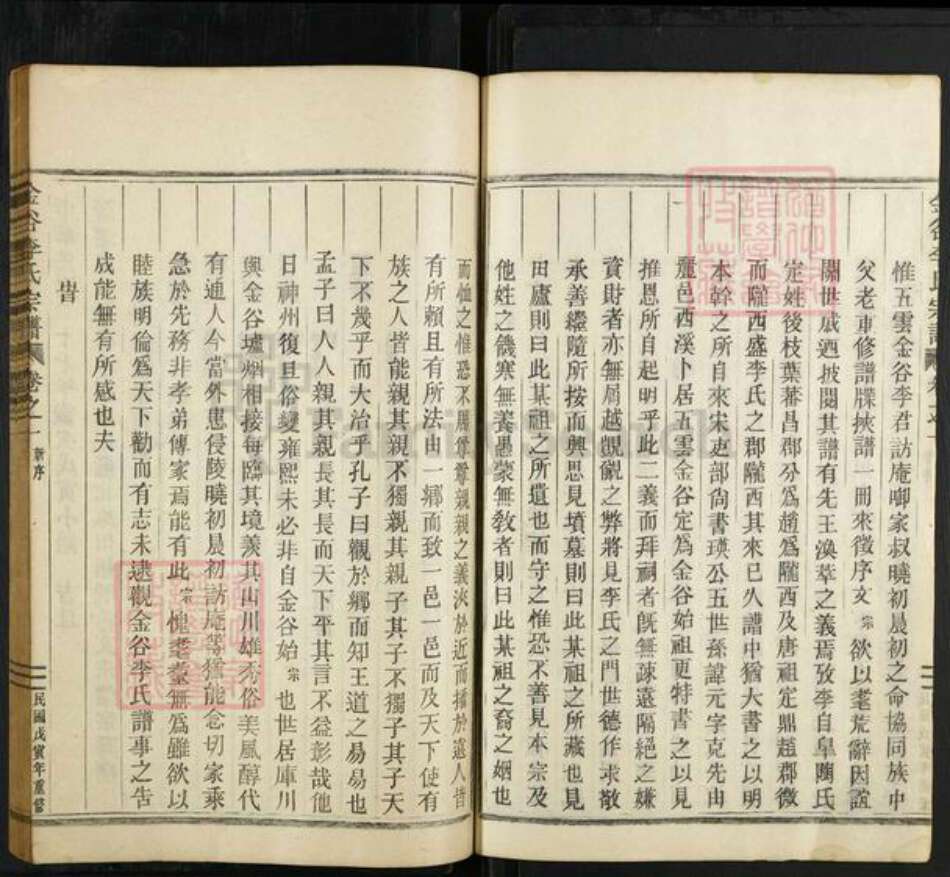 惟五雲金谷李君訪庵啣家叔曉初晨初之命協同族中
父老重修譜牒挾譜一冊來徵序文宗欲以耄荒辭因誼
關世戚迺披閱其譜有先王渙萃之義焉攷李自皐陶氏
定姓後枝葉蕃昌郡分爲趙爲隴西及唐祖定鼎趙郡微
而隴西盛李氏之郡隴西其來已久譜中猶大書之以明
本幹之所自來宋吏部尙書瑛公五世孫諱元字克先由
麗邑西溪卜居五雲金谷定爲金谷始祖更特書之以見
推恩所自起明乎此二義而拜祠者旣無疎遠隔絕之嫌
資財者亦無屑越覬覦之弊將見李氏之門世德作求敬
承善繼隨所按而興思見墳墓則曰此某祖之所藏也見
田廬則曰此某祖之所遺也而守之惟恐不善見本宗及
他姓之饑寒無養愚蒙無敎者則曰此某祖之裔之姻也
而恤之惟恐不勝尊尊親親之義浹於近而播於遠人皆
有所賴且有所法由一鄕而致一邑一邑而及天下使有
族之人皆能親其親不獨親其親子其子不獨子其子天
下不幾乎而大治乎孔子曰觀於鄕而知王道之易易也
孟子曰人人親其親長其長而天下平其言不益彰哉他
日神州復旦俗變雍熙未必非自金谷始宗也世居庫川
與金谷墟烟相接每臨其境羨其山川雄秀俗美風醇代
有通人今當外患侵陵曉初晨初訪庵等猶能念切家乘
急於先務非孝弟傳家焉能有此宗愧耄耋無爲雖欲以
睦族明倫爲天下勸而有志未逮觀金谷李氏譜事之吿
成能無有所感也夫
旹
金谷李氏宗譜
卷之一
新序
民國戊寅年重修